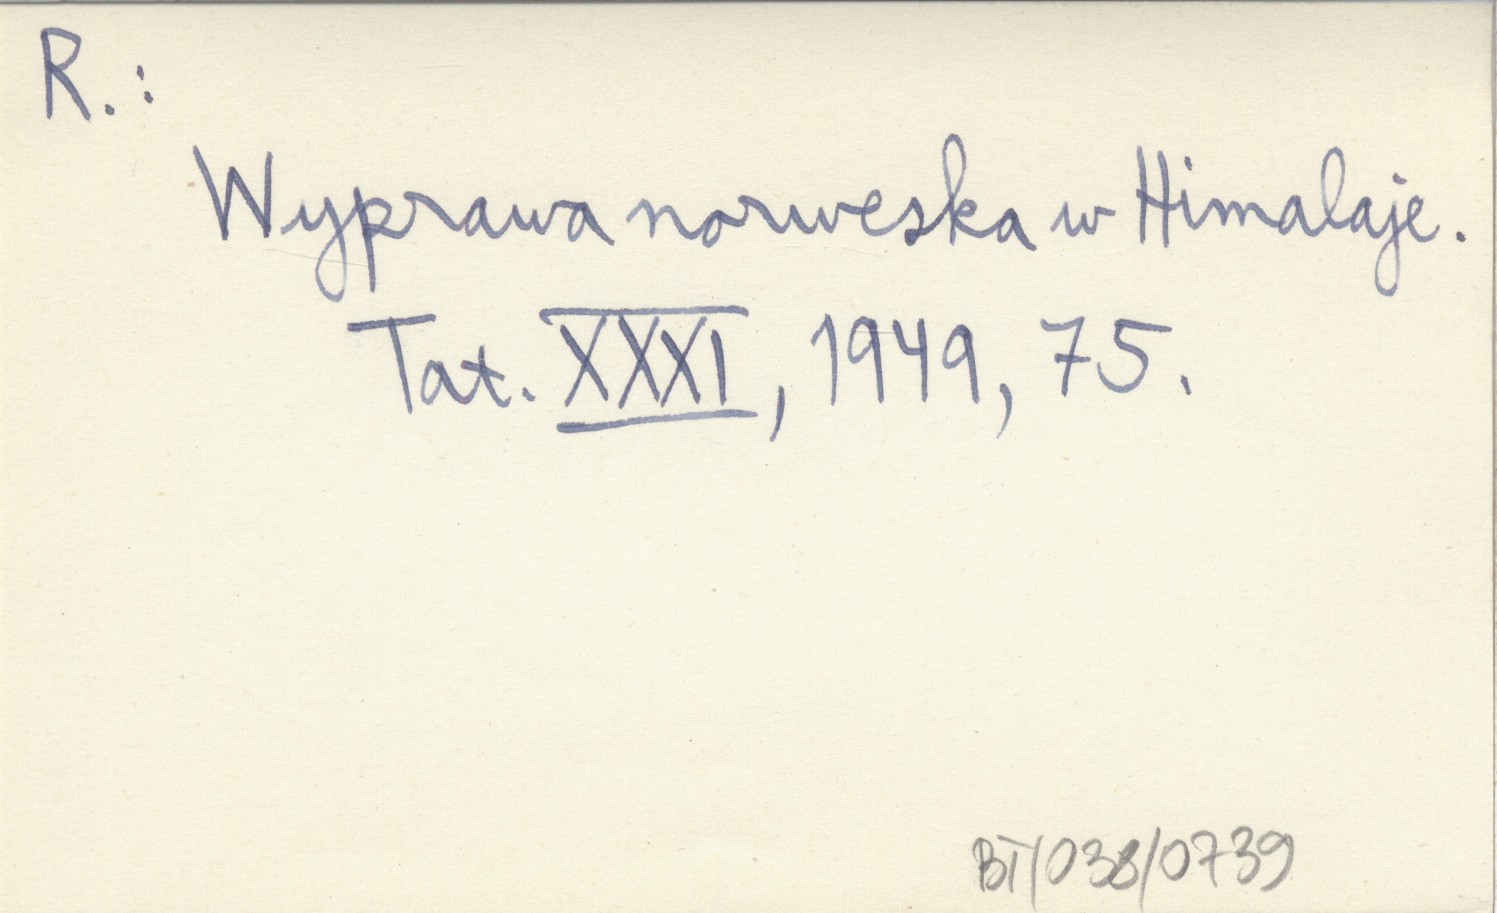 R.:
Wyprawa norweska w Himalaje.
Tat. XXXI, 1949, 75.
BT/038/0739